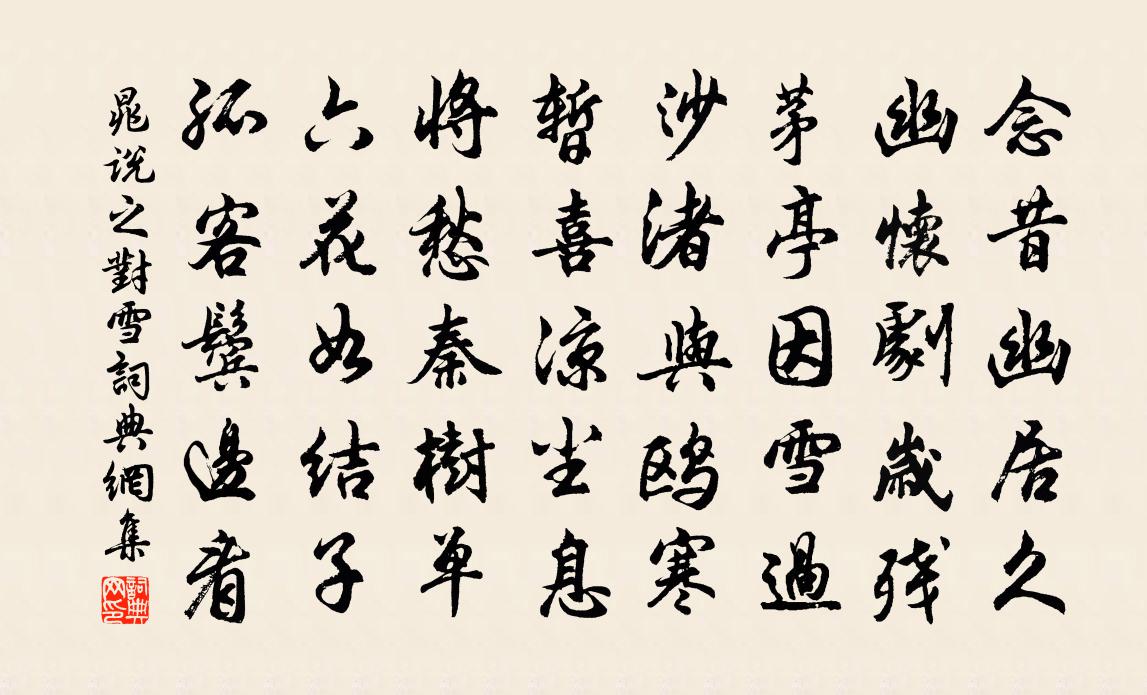 念昔幽居久
幽懷劇歲残
茅亭因雪過
沙渚與鸥寒
暫喜涼尘息
将愁秦樹单
六花如结子
孤客鬓邊看
晁说之對雪詞典網集
詞典网印